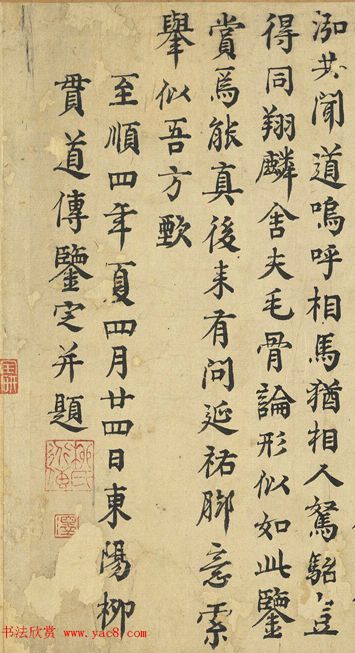 泓共聞道嗚呼相馬猶相人駑駘豈
得同翔麟舍夫毛骨論形似如此鑒
賞焉能真後来有問延祐脚意索
舉似吾方歅
至順四年夏四月廿四日東陽柳
貫道傳鑒定并題
柳氏道傳
书法欣赏 www.yac8.com